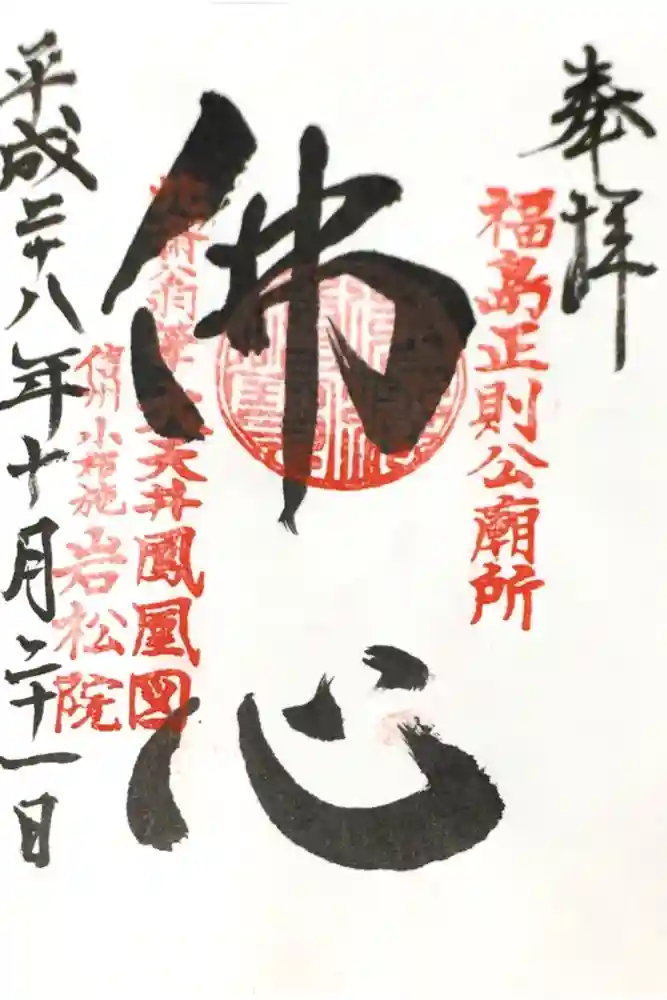 奉拝
福島正則公廟所
佛心
北斎翁筆大天井鳳凰図
信州小布施岩松院
平成二十八年十月二十一日